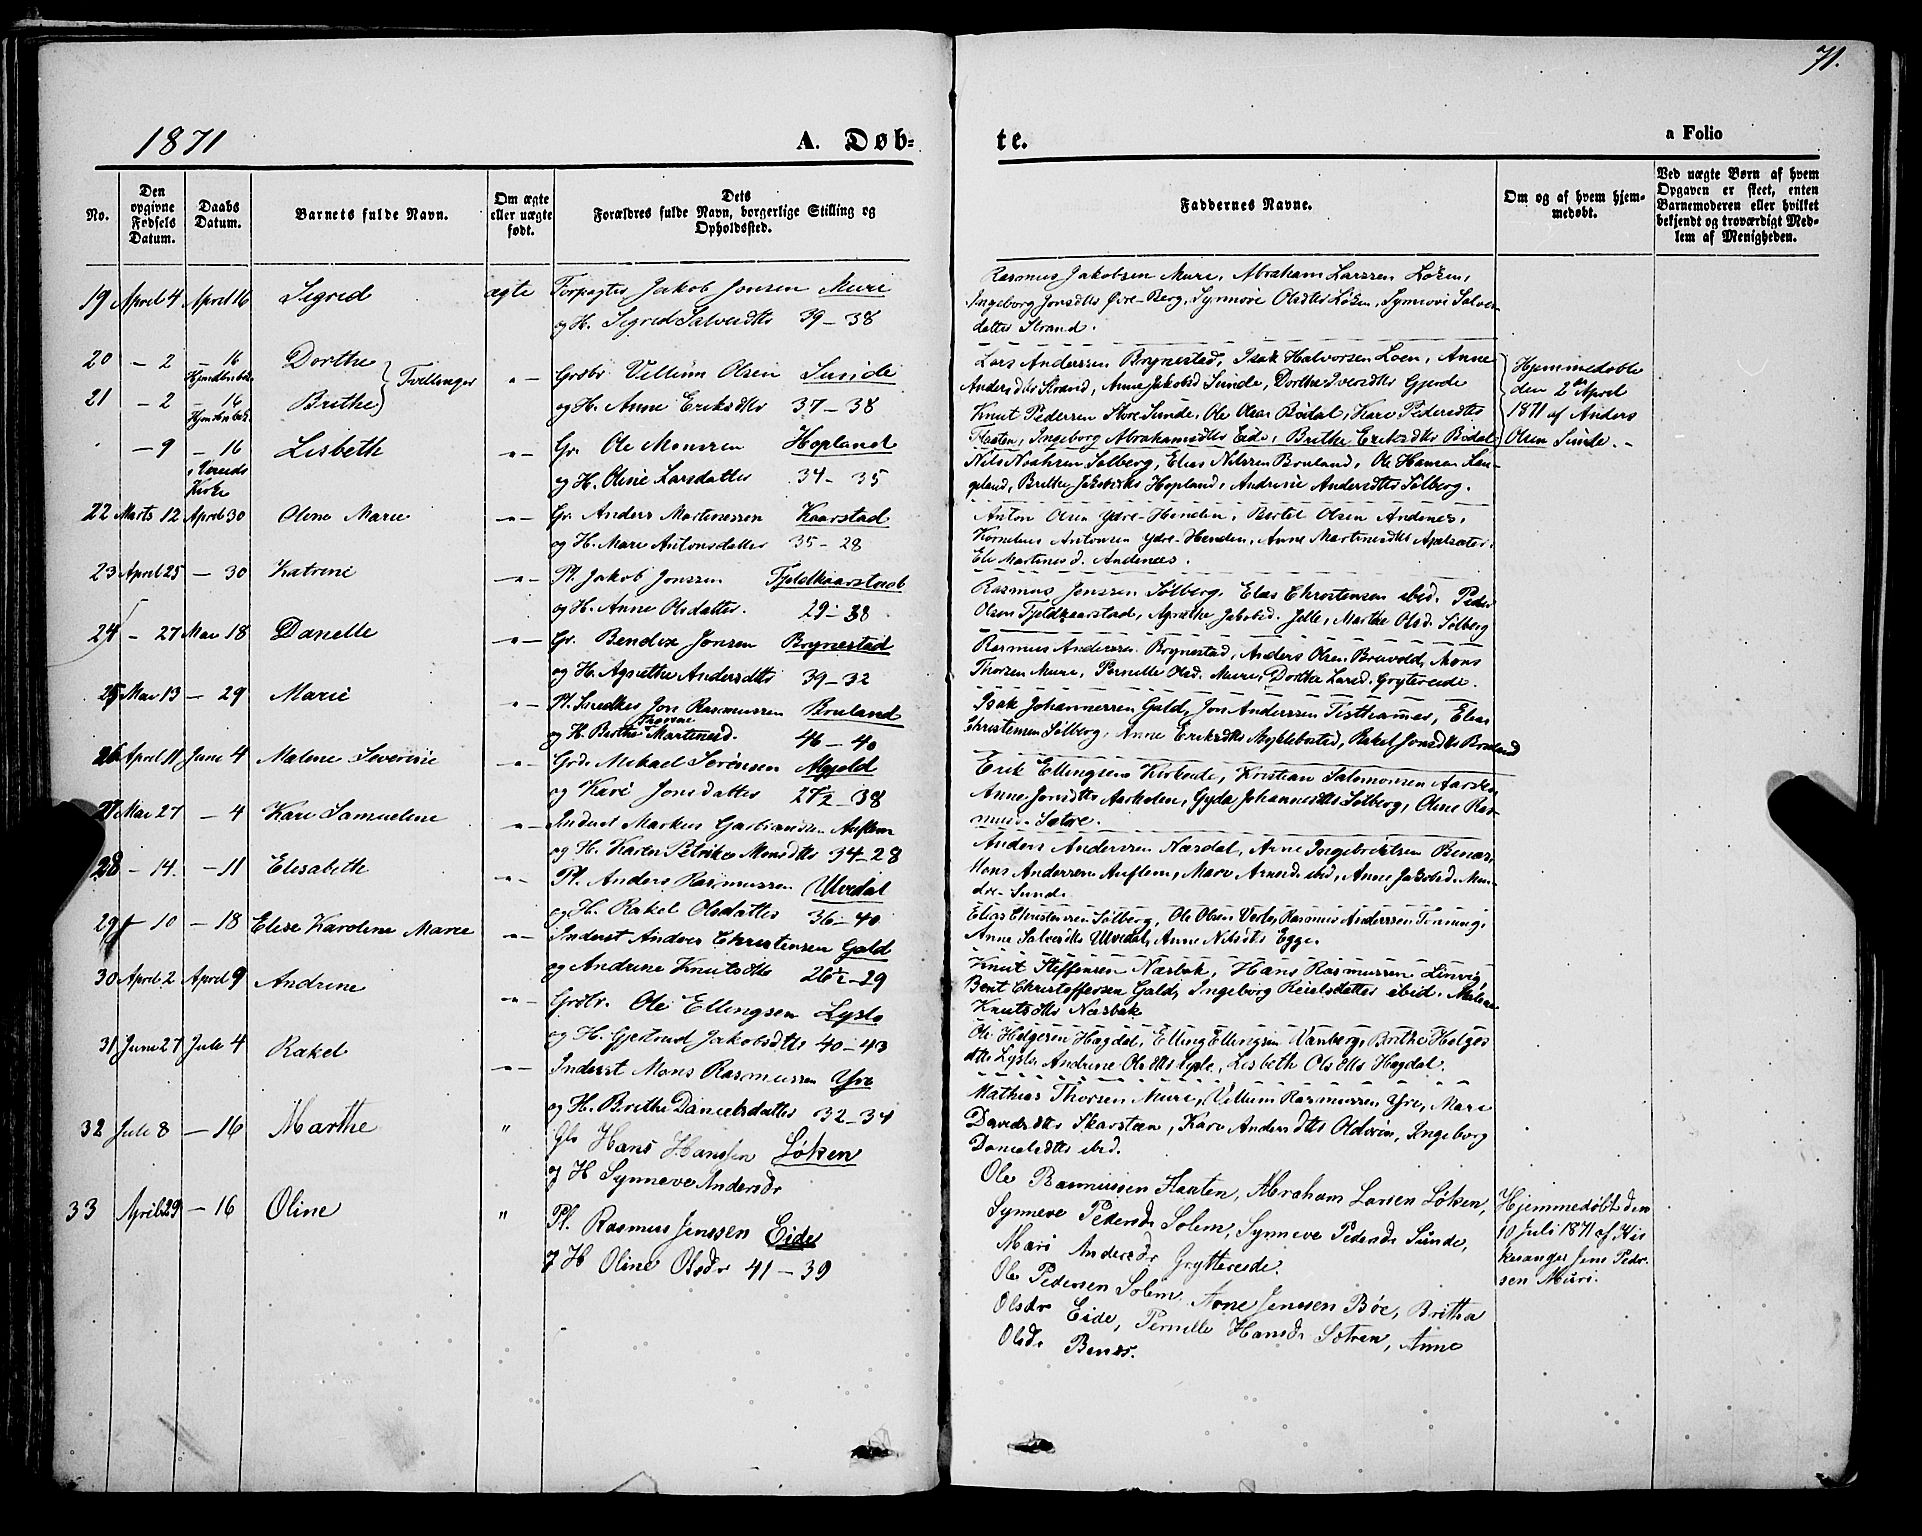 71.
1871
A. Døb-
te.
a Folio
No.
Den opgivne Fødsels Datum.
Daabs Datum.
Barnets fulde Navn.
Om ægte eller uægte født.
Dets Forældres fulde Navn, borgerlige Stilling og Opholdssted.
Faddernes Navne.
Om og af hvem hjem-
medøbt.
Ved uægte Børn af hvem
Opgaven er skeet, enten
Barnemoderen eller hvilket
bekjendt og troværdigt Med-
lem af Menigheden.
19 April 4. April 16 Sigrid ægte Forpagter Jakob Jonsen Muri
og H. Sigrid Salverdtr 39-38
Rasmus Jakobsen Muri, Abraham Larssen Løken,
Ingeborg Jonsdtr Øvre-Berg, Synnøve Olsdtr Løken, Synneve Salve-
datter Strand.
20 - 2 - 16 Dorthe
Tvillinger -"- Grdbr. Villum Olsen Sunde
21 - 2 - 16 Brithe
og H. Anne Eriksdtr 37-38
Lars Anderssen Brynestad, Isak Halvorsen Loen, Anne
Andersdtr Strand, Anne Jakobsd Sunde, Dorthe Iversdtr Gjerde
Knut Pedersen Store Sunde, Ole Olsen Bødal, Kari Pedersdtr
Flaaten, Ingeborg Abrahamsdtr Eide, Brithe Eriksdtr Bødal
Hjemmedøbte
den 2den April
1871 af Anders
Olsen Sunde.-
- 9 - 16 Lisbeth -"- Gr. Ole Monssen Hopland
i Nereids
Kirke
og H. Oline Larsdatter 34-35
Nils Noahsen Solberg, Elias Nilssen Bruland, Ole Hansen Lan-
geland, Brithe Jakobsdtr Hopland, Andrine Andersdtr Solberg.
22 Marts 12 April 30 Oline Marie -"- Gr. Anders Martinussen Kaarstad
og H. Mari Antonsdatter 35-28
Anton Olsen Ydre-Henden, Bertel Olsen Andenes,
Kornelius Antonsen Ydre-Henden, Anne Martinusdtr Apalsæter,
Eli Martinusd. Andenæs.
23 April 25 - 30 Katrine -"- Pl. Jakob Jonssen Fjeldkaarstad
og H. Anne Olsdatter. 29-38
Rasmus Jonssen Solberg, Elias Christensen ibid. Peder
Olsen Fjeldkaarstad, Agnethe Jakobsd. Jelle, Marthe Olsd. Solberg
24 - 27 Mai 18 Danelle -"- Gr. Bendix Jonsen Brynestad
og H. Agnethe Andersdtr 39-32
Rasmus Anderssen Brynestad, Anders Olsen Bruvold, Mons
Thorsen Muri, Pernille Olsd. Muri, Dorthe Larsd. Grytereide.
25 Mai 13 - 29 Marie -"- Pl. Snedker Jon Rasmussen Bruland
og H. Berthe Thorine Martinusd. 46-40
Isak Johannessen Gald, Jon Anderssen Tisthamer, Elias
Christensen Solberg, Anne Eriksdtr Myklebostad, Rakel Jonsdtr Bruland
26 April 11 June 4 Malene Severine -"- Grd. Mikael Sørensen Mjeld
og Kari Jonsdatter 27½-38
Erik Ellingsen Kirkeide, Kristian Salomonsen Aarsten
Anne Jonsdtr Aarholen, Gyda Johannesdtr Solberg, Oline Ras-
musd. Sætre.
27 Mai 27 - 4 Kari Samueline -"- Inderst Markus Gabrielsen Auflem
og H. Karen Petrike Monsdtr 34-28
Anders Anderssen Næsdal, Arne Ingebriktsen Benæs,
Mons Anderssen Auflem, Mari Arnesd. ibid, Anne Jakobsd. Mun-
dre-Sunde.
28 - 14. - 11 Elisabeth -"- Pl. Anders Rasmussen Ulvedal
og H. Rakel Olsdatter 36-40
Elias Christensen Solberg, Ole Olsen Verlo, Rasmus Anderssen Tenning,
Anne Salvesdtr Ulvedal, Anne Nilsdtr Egge.
29 - 10 - 18 Elise Karoline Marie -"- Inderst Anders Christensen Gald
og Andrine Knutsdtr 26½-29
Knut Steffensen Næsbak, Hans Rasmussen Linvig,
Bent Christoffersen Gald, Ingeborg Reielsdatter ibid. Malene
Knutsdtr Næsbak
30 April 2 April 9 Andrine -"- Grdbr. Ole Ellingsen Lyslo
og H. Gjertrud Jakobsdtr 40-43
Ole Helgesen Hagdal, Elling Ellingsen Vanberg, Brithe Helges
dtr Lyslo Andrine Olsdtr Lyslo, Lisbeth Olsdtr Hagdal.
31 June 27 Juli 4 Rakel -"- Inderst Mons Rasmussen Yri
og H. Brithe Danielsdatter 32-34
Mathias Thorsen Muri, Villum Rasmussen Yri, Mari
Davidsdtr Skarsteen, Kari Andersdtr Oldøren, Ingeborg
Danielsdtr ibid.
32 Juli 8 - 16 Marthe " Gbr Hans Hanssen Løken
og H Synneve Andersdr
Ole Rasmussen Flaaten, Abraham Larsen Løken,
Synneve Pedersdr Solem, Synneve Pedersdr Sunde,
Mari Andersdr Gryttereide.
Hjemmedøbt den
10 Juli 1871 af Kir
kesanger Jens Peder-
sen Muri.
33 April 29 - 16 Oline " Pl. Rasmus Jenssen Eide
og H Oline Olsdr 41-39
Ole Pedersen Solem Arne Jenssen Bøe, Britha
Olsdr Eide, Pernille Hansdr Sætren, Anne
Olsdr Benes.